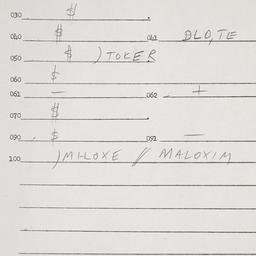 030 $
040 $ 041 DLD,TE
050 $ ) TOKER
060 $
061 — 062 +
070 $
090 $ 091 —
100 )MILOXE // MALOXIM